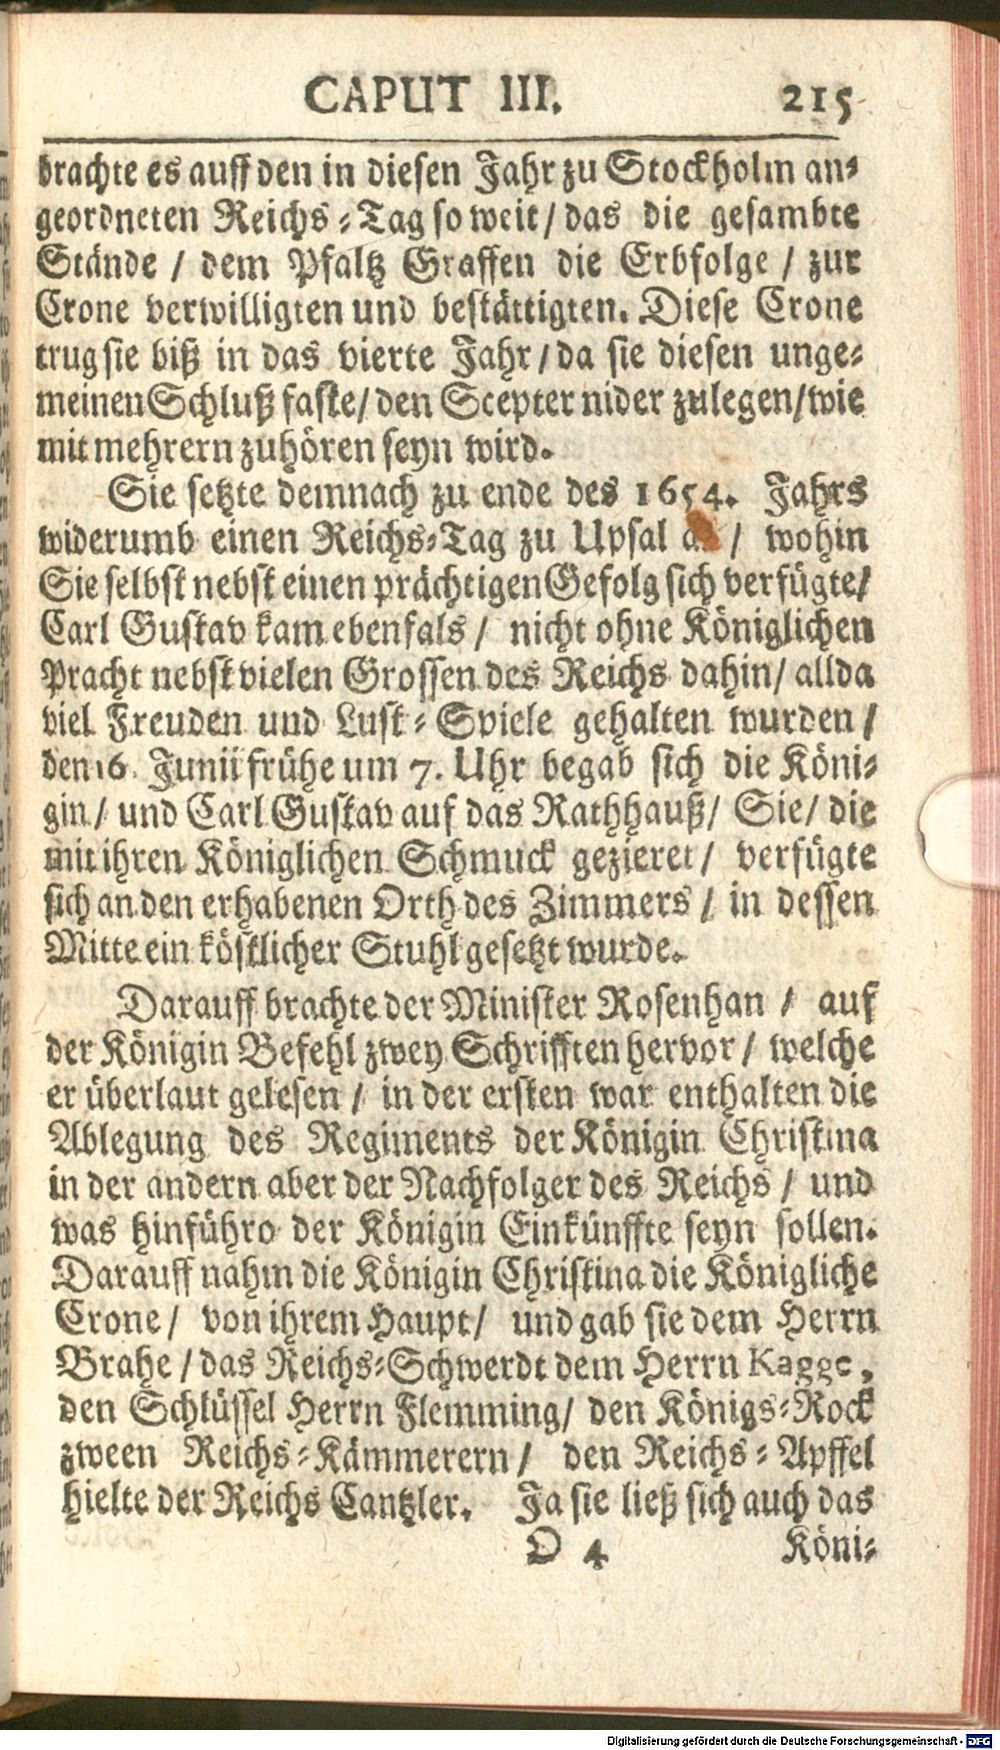 CAPUT III. 215
brachte es auff den in diesen Jahr zu Stockholm an-
geordneten Reichs-Tag so weit / das die gesambte
Stände / dem Pfaltz Graffen die Erbfolge / zur
Crone verwilligten und bestättigten. Diese Crone
trug sie biß in das vierte Jahr / da sie diesen unge-
meinen Schluß faste / den Scepter nider zulegen / wie
mit mehrern zuhören seyn wird.
Sie setzte demnach zu ende des 1654. Jahrs
widerumb einen Reichs-Tag zu Upsal / wohin
Sie selbst nebst einen prächtigen Gefolg sich verfügte /
Carl Gustav kam ebenfals / nicht ohne Königlichen
Pracht nebst vielen Grossen des Reichs dahin / allda
viel Freuden und Lust-Spiele gehalten wurden /
den 16. Junii frühe um 7. Uhr begab sich die Köni-
gin / und Carl Gustav auf das Rathhauß / Sie / die
mit ihren Königlichen Schmuck gezieret / verfügte
sich an den erhabenen Orth des Zimmers / in dessen
Mitte ein köstlicher Stuhl gesetzt wurde.
Darauff brachte der Minister Rosenhan / auf
der Königin Befehl zwey Schrifften hervor / welche
er überlaut gelesen / in der ersten war enthalten die
Ablegung des Regiments der Königin Christina
in der andern aber der Nachfolger des Reichs / und
was hinführo der Königin Einkünffte seyn sollen.
Darauff nahm die Königin Christina die Königliche
Crone / von ihrem Haupt / und gab sie dem Herrn
Brahe / das Reichs-Schwerdt dem Herrn Kagge,
den Schlüssel Herrn Flemming / den Königs-Rock
zween Reichs-Kämmerern / den Reichs-Apffel
hielte der Reichs Cantzler. Ja sie ließ sich auch das
O 4 Köni-
Digitalisierung gefördert durch die Deutsche Forschungsgemeinschaft - DFG